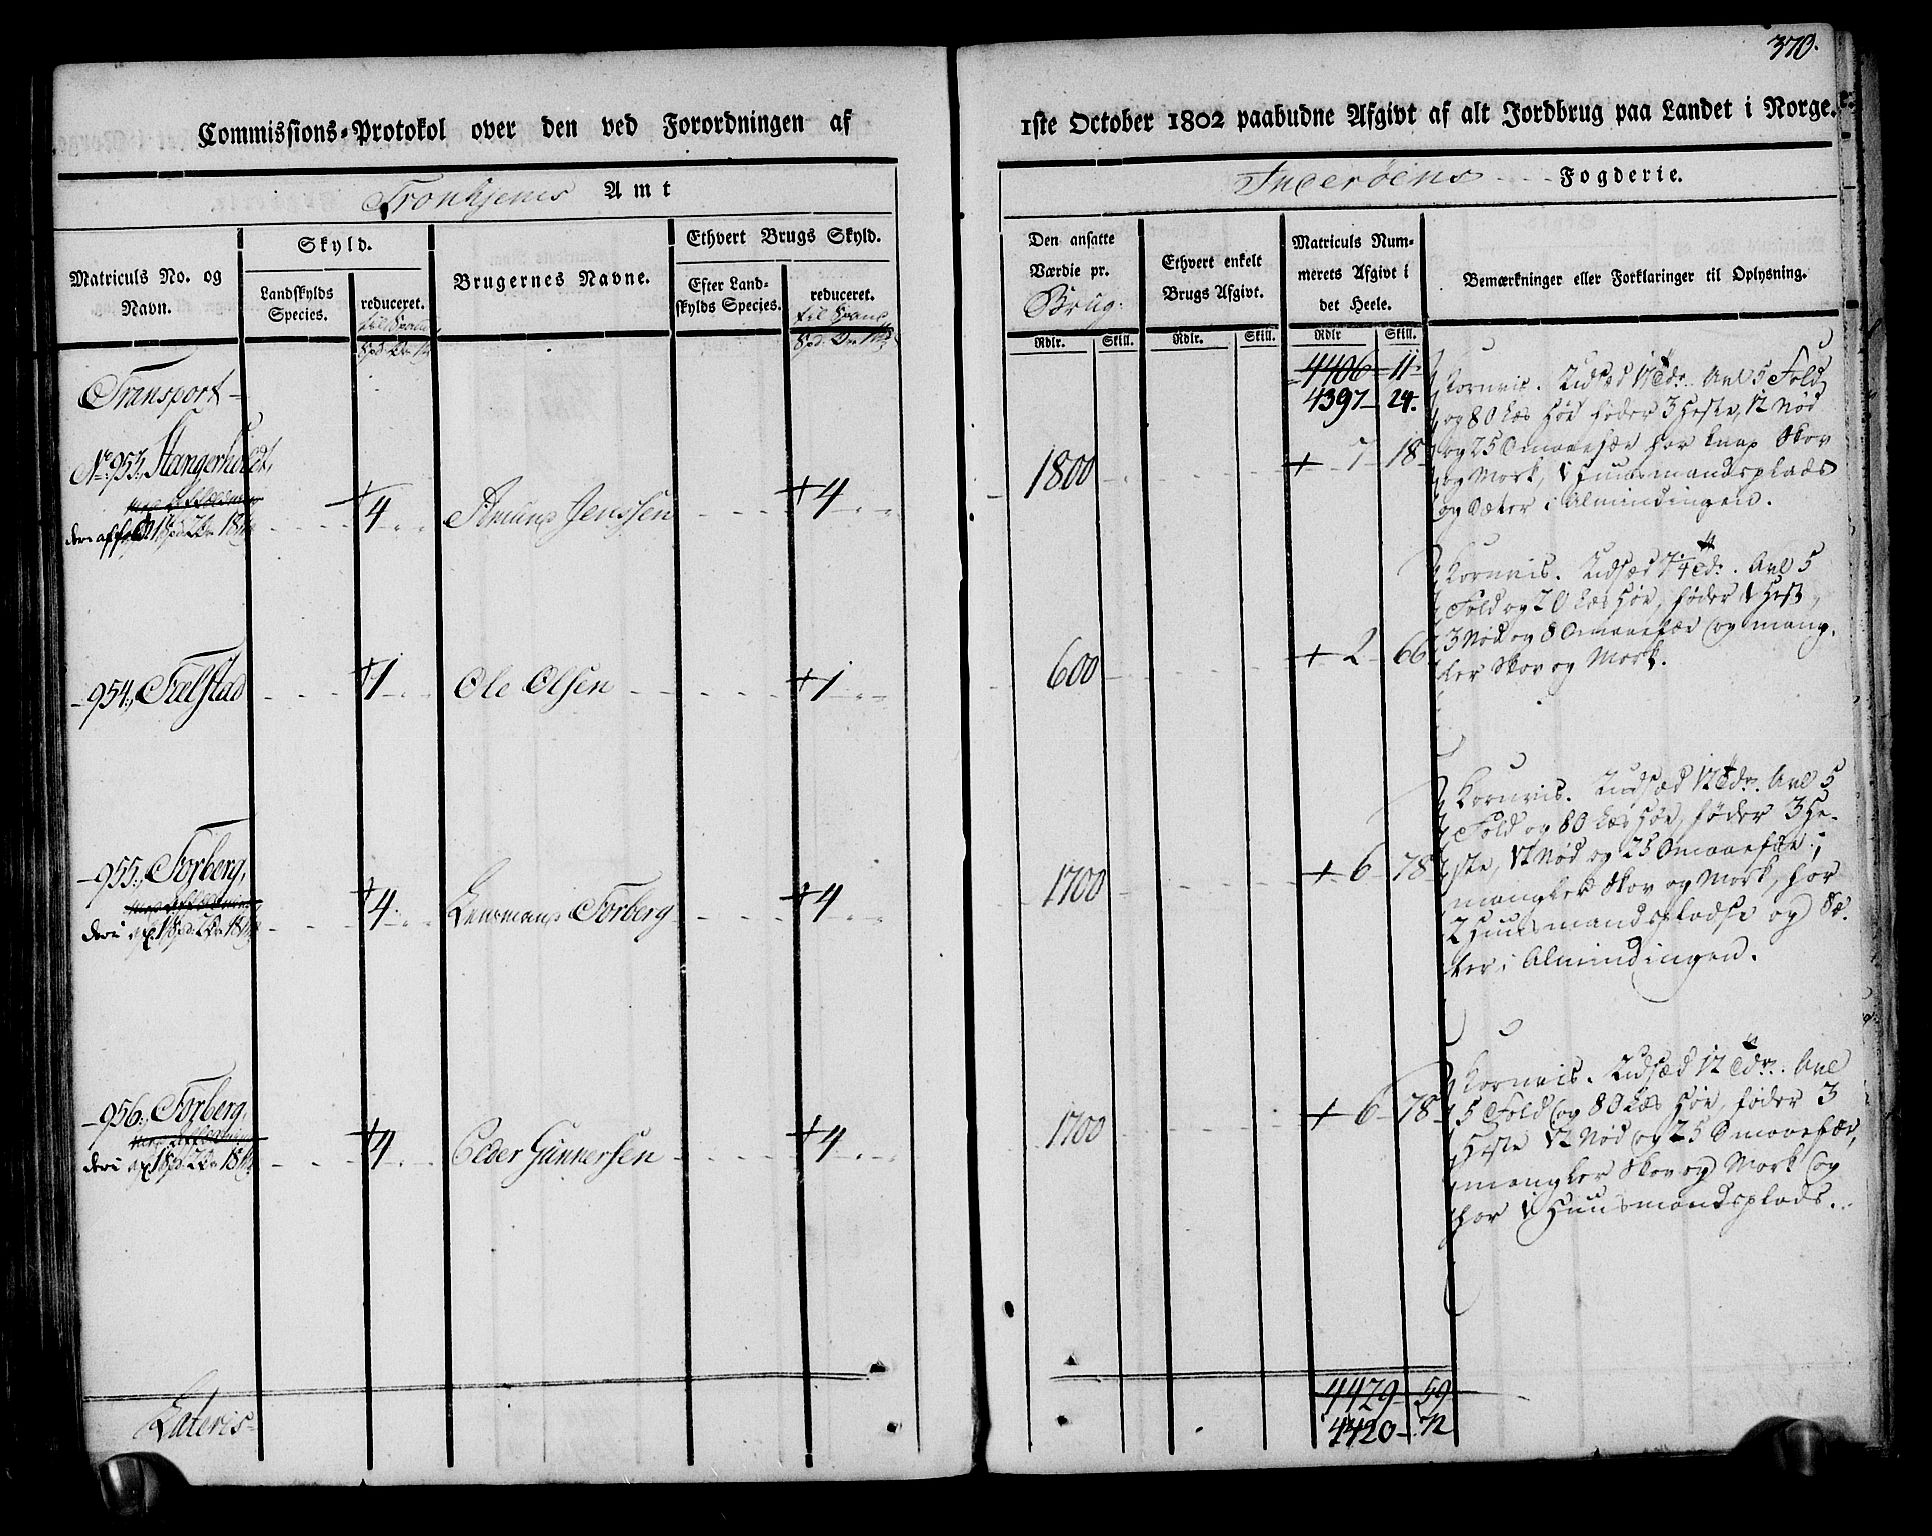 370.
Commissions-Protokol over den ved Forordningen af
1ste October 1802 paabudne Afgivt af alt Jordbrug paa Landet i Norge.
Tronhjems Amt
Inderøens Fogderie.
Matriculs No. og
Navn.
Skyld.
Landskylds
Species.
reduceret.
Brugernes Navne.
Ethvert Brugs Skyld.
Efter Land-
skylds Species.
reduceret.
Den ansatte
Værdie pr.
Brug.
Ethvert enkelt
Brugs Afgivt.
Matriculs Num-
merets Afgivt i
det Heele.
Bemærkninger eller Forklaringer til Oplysning.
Rdlr. Skill. Rdlr. Skill. Rdlr Skill.
Transport
4406 11
4397 24.
No. 953, Stangerholdt,
+ 4 Amund Jenssen + 4 1800 + 7 18
Kornvis. Udsæd 17 Tdr. Avl 5 Fold
og 80 Læs Høe føder 3 Heste, 12 Nød
og 25 Smaaefæe har knap Skov
og Mark, 1 Huusmandsplads
og Sæter i Almindingen.
954, Fælstad + 1 Ole Olsen + 1 600 + 2 66
Kornvis. Udsæd Tdr. Avl 5
Fold og 20 Læs Høe, føder 1 Hest,
3 Nød og 8 Smaaefæe og mang-
ler Skov og Mark.
955, Forberg,
+ 4 Lensmand Forberg + 4 1700 + 6 78
Kornvis. Udsæd 12 Tdr. Avl 5
Fold og 80 Læs Høe, føder 3 He-
ste, 12 Nød og 25 Smaaefæe,
mangler Skov og Mark, har
2 Huusmandspladse og Sæ-
ter i Almindingen.
956, Forberg,
+ 4 Peder Gunnersen + 4 1700 + 6 78
Kornvis. Udsæd 12 Tdr. Avl
5 Fold og 80 Læs Høe, føder 3
Heste 12 Nød og 25 Smaaefæe,
mangler Skov og Mark og
har 1 Huusmandsplads.
Lateris
4429 59
4420 72